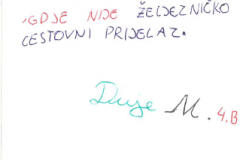 GDJE NIJE ŽELJEZNIČKO
CESTOVNI PRIJELAZ.
Duje M. 4.B